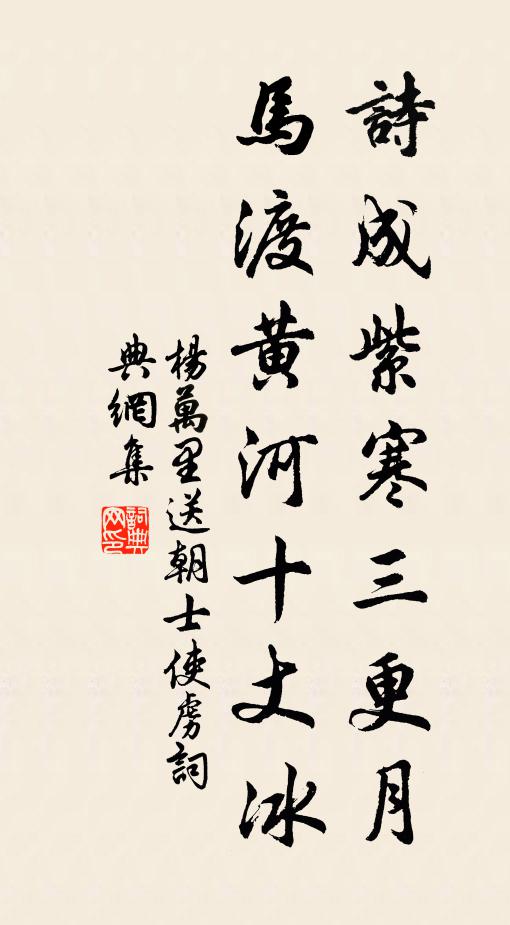 詩成紫寒三更月
馬渡黃河十丈冰
楊萬里送朝士使虜詞
典網集
詞典网印